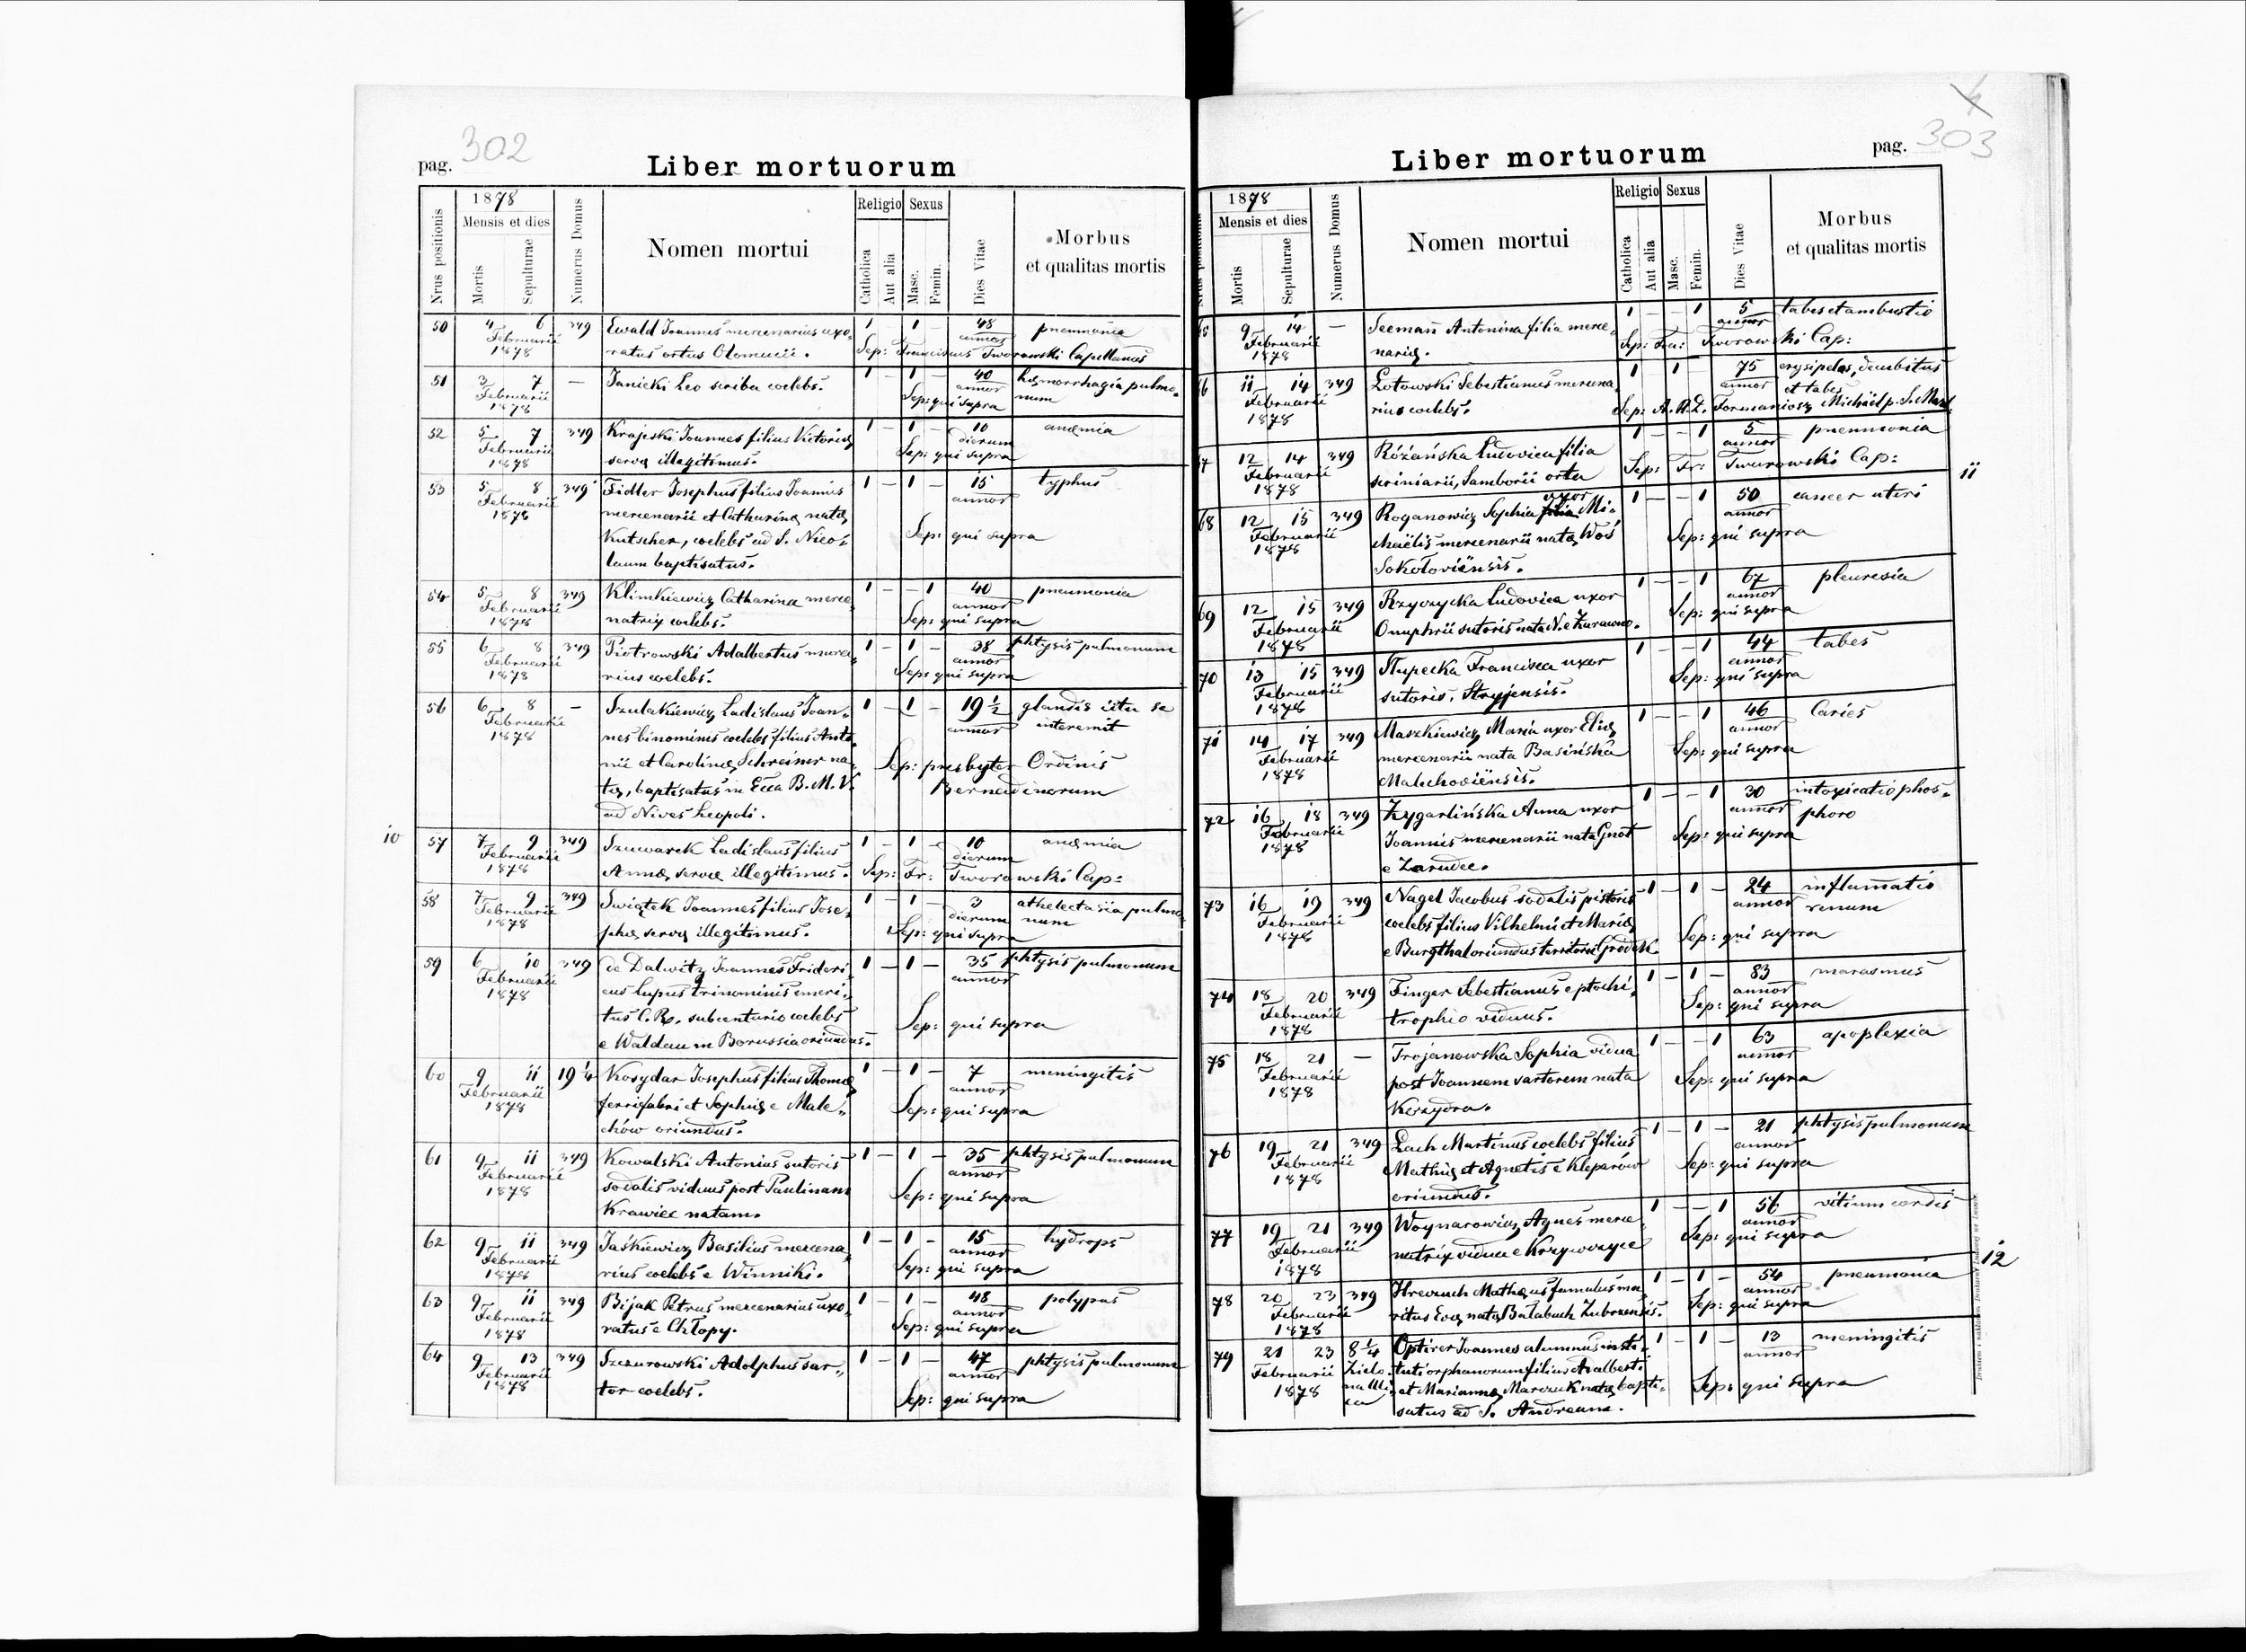 pag. 302
Liber mortuorum
Nrus positionis
1878
Mensis et dies
Mortis
Sepulturae
Numerus Domus
Nomen mortui
Religio
Catholica
Aut alia
Sexus
Masc.
Femin.
Dies Vitae
Morbus
et qualitas mortis
50 4 6 349 Ewald Joannes mercenarius uxo- 1 - 1 - 48 pneumonia
Februarii annor
1878 ratus ortus Olomucii. Sep: Franciscus Tworowski Capellanus
51 3 7 - Janicki Leo scriba coelebs. 1 - 1 - 40 hæmorrhagia pulmo-
Februarii annor num
1878 Sep: qui supra
52 5 7 349 Krajeski Joannes filius Victoriæ 1 - 1 - 10 anæmia
Februarii dierum
1878 servæ illegitimus. Sep: qui supra
53 5 8 349 Fidler Josephus filius Joannis 1 - 1 - 15 typhus
Februarii annor
1878 mercenarii et Catharinæ natæ
Kutscher, coelebs ad S. Nico- Sep: qui supra
laum baptisatus.
54 5 8 349 Klimkiewicz Catharina merce- 1 - - 1 40 pneumonia
Februarii annor
1878 natrix coelebs. Sep: qui supra
55 6 8 349 Piotrowski Adalbertus merce- 1 - 1 - 38 phtysis pulmonum
Februarii annor
1878 rius coelebs. Sep: qui supra
56 6 8 - Szulakiewicz Ladislaus Joan- 1 - 1 - 19 1/2 glandis ictu se
Februarii annor interemit
1878 nes binominis coelebs filius Anto-
nii et Carolinæ Schreiner na- Sep: presbyter Ordinis
tæ, baptisatus in Ecca B. M. V. Bernadinorum
ad Nives Leopoli.
10
57 7 9 349 Szuwarek Ladislaus filius 1 - 1 - 10 anæmia
Februarii dierum
1878 Annæ servæ illegitimus. Sep: Fr: Tworowski Cap:
58 7 9 349 Swiątek Joannes filius Jose- 1 - 1 - 3 athelectasia pulmo-
Februarii dierum num
1878 phæ servæ illegitimus. Sep: qui supra
59 6 10 349 de Dalwitz Joannes Frideri- 1 - 1 - 35 phtysis pulmonum
Februarii annor
1878 cus Lupus trinominis emeri-
tus C. R. subcenturio coelebs Sep: qui supra
e Waldau in Borussia oriundus.
60 9 11 19 1/4 Kosydar Josephus filius Thomæ 1 - 1 - 7 meningitis
Februarii annor
1878 ferrifabri et Sophiæ e Male- Sep: qui supra
chów oriundus.
61 9 11 349 Kowalski Antonius sutoris 1 - 1 - 35 phtysis pulmonum
Februarii annor
1878 sodalis viduus post Paulinam Sep: qui supra
Krawiec natam.
62 9 11 349 Jaśkiewicz Basilius mercena- 1 - 1 - 15 hydrops
Februarii annor
1878 rius coelebs e Winniki. Sep: qui supra
63 9 11 349 Bijak Petrus mercenarius uxo- 1 - 1 - 48 polypus
Februarii annor
1878 ratus e Chłopy. Sep: qui supra
64 9 13 349 Szczurowski Adolphus sar- 1 - 1 - 47 phtysis pulmonum
Februarii annor
1878 tor coelebs. Sep: qui supra
pag. 303
Liber mortuorum
1878
Mensis et dies
Mortis
Sepulturae
Numerus Domus
Nomen mortui
Religio
Catholica
Aut alia
Sexus
Masc.
Femin.
Dies Vitae
Morbus
et qualitas mortis
65 9 14 - Seemañ Antonina filia merce- 1 - - 1 5 tabes et ambustio
Februarii annor
1878 nariæ. Sep: Fra: Tworowski Cap:
66 11 14 349 Lotowski Sebestianus mercena- 1 1 - 75 erysipelas, decubitus
Februarii annor et tabes
1878 rius coelebs. Sep: A. R. D. Formaniosz Michäel p. S. Mart.
67 12 14 349 Różańska Ludovica filia 1 - - 1 5 pneumonia
Februarii annor
1878 scriniarii, Samborii orta Sep: Fr: Tworowski Cap:
11
68 12 15 349 Roganowicz Sophia uxor Mi- 1 - - 1 50 cancer uteri
Februarii annor
1878 chaëlis mercenarii nata Woś Sep: qui supra
Sokołoviënsis.
69 12 15 349 Rzyczycka Ludovica uxor 1 - - 1 67 pleuresia
Februarii annor
1878 Onuphrii sutoris nata N. e Żurawno. Sep: qui supra
70 13 15 349 Słupecka Francisca uxor 1 - - 1 44 tabes
Februarii annor
1878 sutoris, Stryjensis. Sep: qui supra
71 14 17 349 Maszkiewicz Maria uxor Eliæ 1 - - 1 46 Caries
Februarii annor
1878 mercenarii nata Basińska Sep: qui supra
Malechoviënsis.
72 16 18 349 Zygarlińska Anna uxor 1 - - 1 30 intoxicatio phos-
Februarii annor phoro
1878 Joannis mercenarii nata Gnot Sep: qui supra
e Zarudce.
73 16 19 349 Nagel Jacobus sodalis pistoris 1 - 1 - 24 inflamatio
Februarii annor renum
1878 coelebs filius Vilhelmi et Mariæ Sep: qui supra
e Burgthal oriundus territorii Grodek
74 18 20 349 Finger Sebestianus e ptochi- 1 - 1 - 83 marasmus
Februarii annor
1878 trophio viduus. Sep: qui supra
75 18 21 - Trojanowska Sophia vidua 1 - - 1 63 apoplexia
Februarii annor
1878 post Joannem sartorem nata Sep: qui supra
Korzydra.
76 19 21 349 Lach Martinus coelebs filius 1 - 1 - 21 phtysis pulmonum
Februarii annor
1878 Mathiæ et Agnetis e Kleparów Sep: qui supra
oriundus.
77 19 21 349 Woynarowicz Agnes merce- 1 - - 1 56 vitium cordis
Februarii annor
1878 natrix vidua e Krzywczyce Sep: qui supra
12
78 20 23 349 Hreczuch Mathæus famulus ma- 1 - 1 - 54 pneumonia
Februarii annor
1878 ritus Evæ natæ Bałabuch Zubrzensis. Sep: qui supra
79 21 23 8 1/4 Optirer Joannes alumnus insti- 1 - 1 - 13 meningitis
Februarii Zielo- annor
1878 na Uli- tuti orphanorum filius Adalberti
ca et Mariannæ Marczuk natæ bapti- Sep: qui supra
satus ad S. Andream.